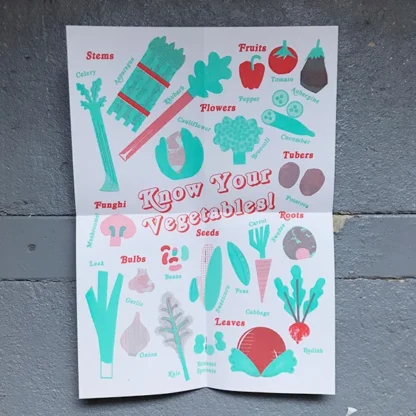 Stems
Celery
Asparagus
Rhubarb
Fruits
Pepper
Tomato
Aubergine
Cucumber
Flowers
Cauliflower
Broccoli
Tubers
Potatoes
Know Your
Vegetables!
Funghi
Mushroom
Bulbs
Leek
Garlic
Onion
Seeds
Beans
Sweetcorn
Peas
Roots
Carrot
Swede
Radish
Leaves
Kale
Brussel
Sprouts
Cabbage